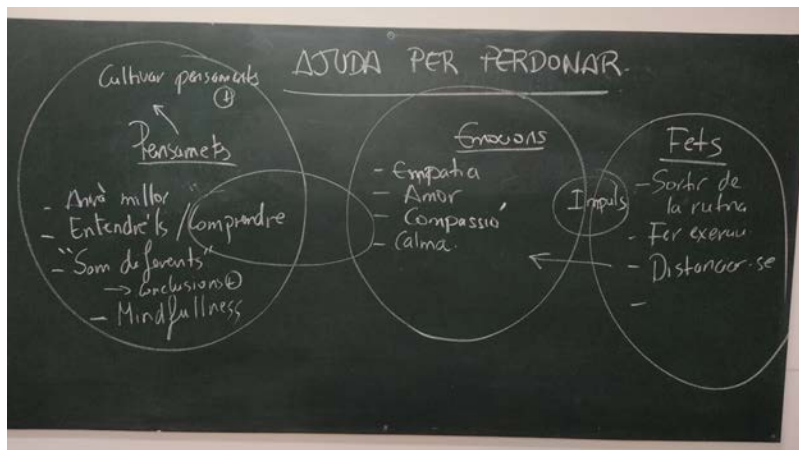 AJUDA PER PERDONAR.
Cultivar pensaments
(+)
Pensamets
- Anirà millor
- Entendre'ls / Comprendre
- "Som diferents"
→ Conclusions (+)
- Mindfullness
Emocions
- Empatia
- Amor
- Compassió
- Calma.
Impuls
Fets
- Sortir de
la rutina
- Fer
- Distanciar-se
-